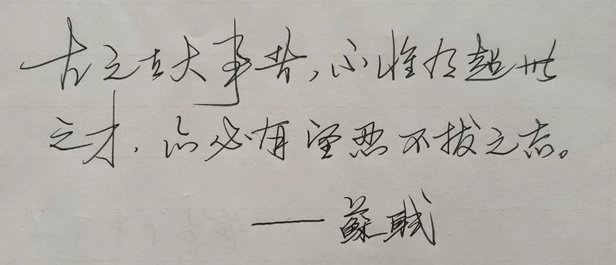 古之立大事者,不惟有超世
之才,亦必有坚忍不拔之志。
——蘇軾